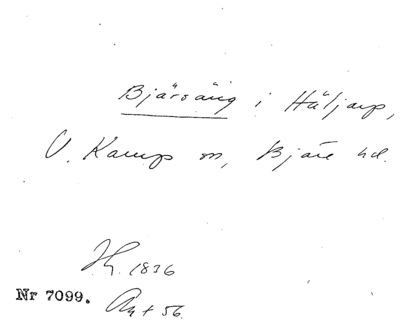 Bjärsäng i Häljarp,
V. Karup sn, Bjäre hd.
Hy. 1836
Nr 7099. Ant 56.